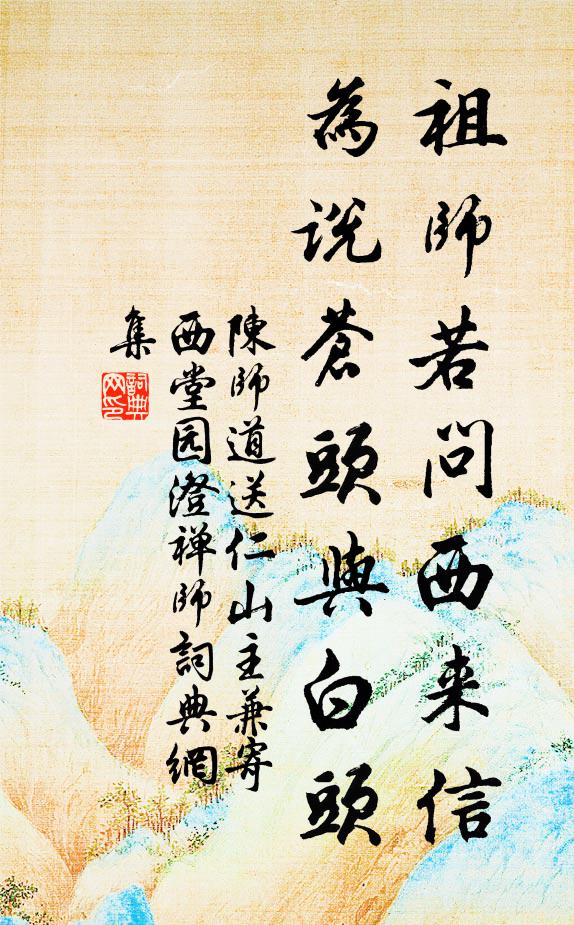 祖師若問西来信
為說蒼頭與白頭
陳師道送仁山主兼寄
西堂园澄禅師詞典網
集
詞典网印